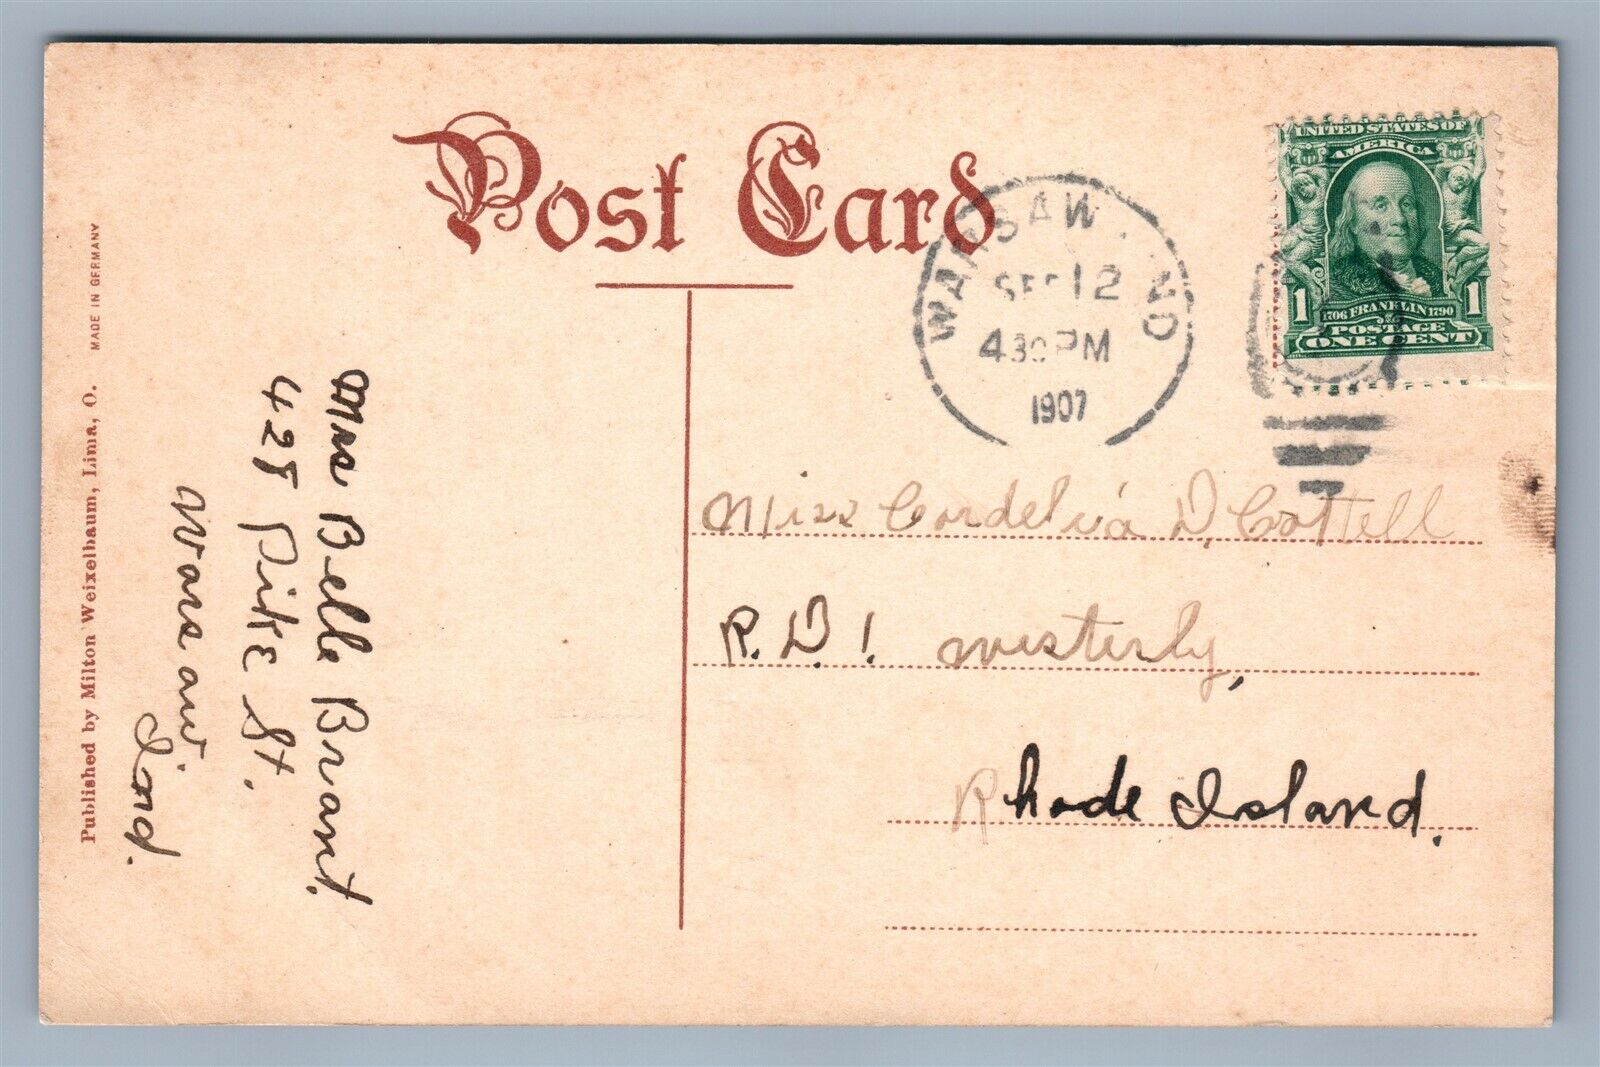 Post Card
WARSAW, IND
SEP 12
430 PM
1907
UNITED STATES OF
AMERICA
1 1
1706 FRANKLIN 1790
POSTAGE
ONE CENT
Miss Cordelia D, Cottell
R.D. 1. Westerly,
Rhode Island.
Mrs Belle Briant.
428 Pike St.
Warsaw
Ind.
Published by Milton Weixelbaum, Lima, O. MADE IN GERMANY